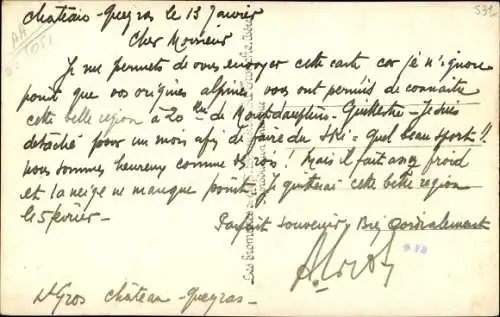 Château-Queyras le 13 Janvier
Cher Monsieur
Je me permets de vous envoyer cette carte car je n'ignore
point que vos origines alpines vous ont permis de connaitre
cette belle region à 20 km de Montdauphin-Guillestre - Je suis
détaché pour un mois afin de faire du ski - Quel beau sport !!
nous sommes heureux comme des rois ! Mais il fait assez froid
et la neige ne manque point. Je quitterai cette belle region
le 5 février -
Parfait souvenir, Bien Cordialement
Lt Gros Château-Queyras -
531
AA
1051